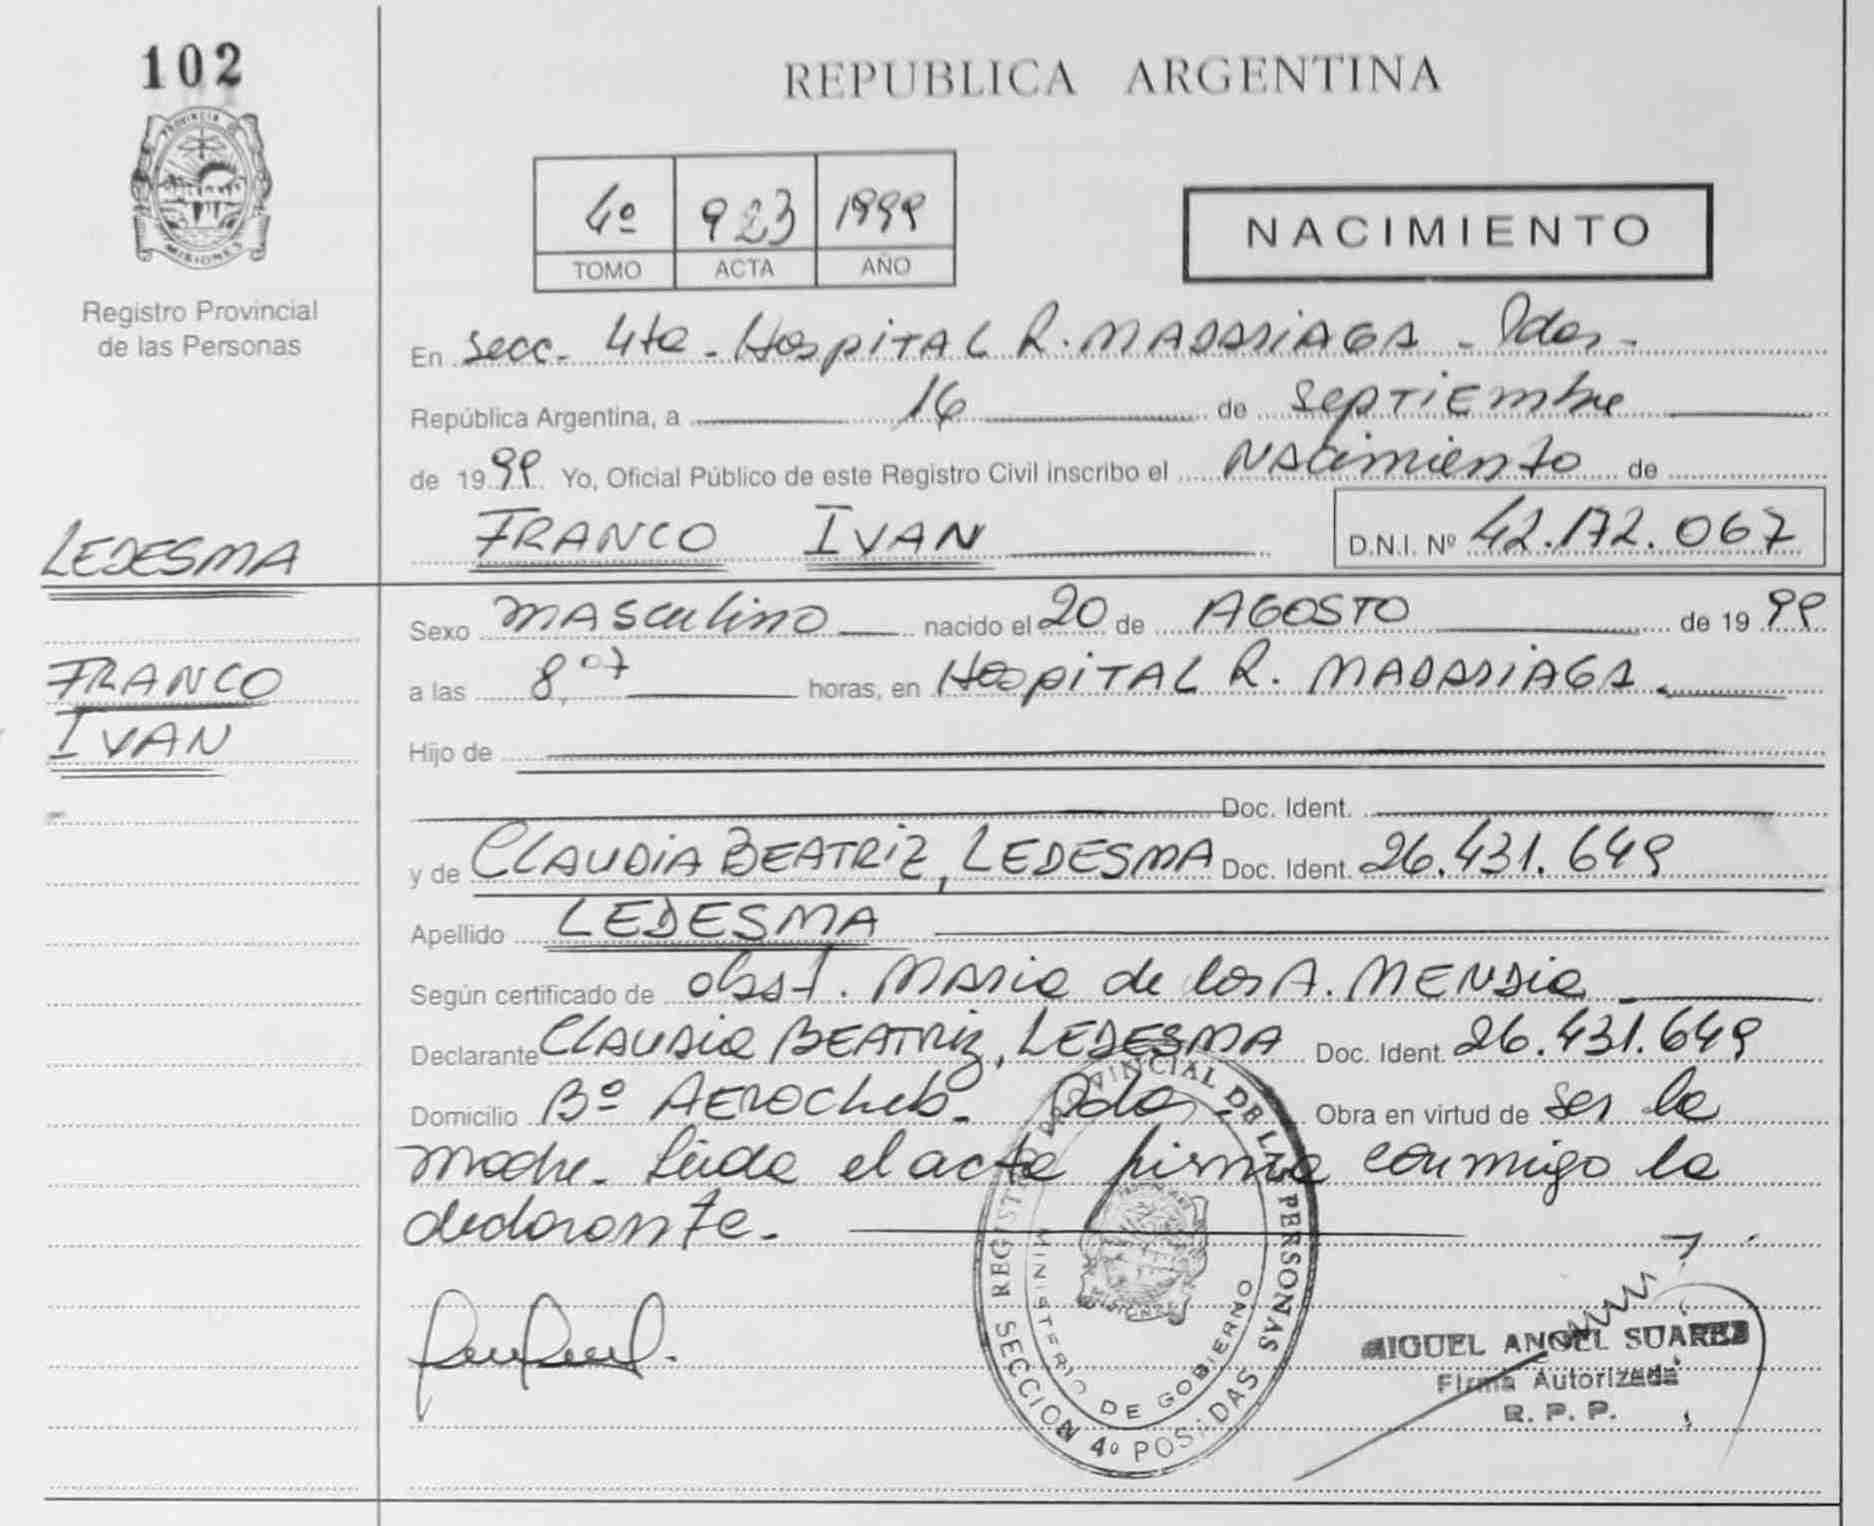 102
PROVINCIA DE
MISIONES
Registro Provincial
de las Personas
REPUBLICA ARGENTINA
4º 923 1999
TOMO ACTA AÑO
NACIMIENTO
En Secc. 4ta. Hospital R. MADARIAGA - Pdas.
República Argentina, a 16 de septiembre
de 1999 Yo, Oficial Público de este Registro Civil inscribo el Nacimiento de
FRANCO IVAN D.N.I. Nº 42.172.067
LEDESMA
FRANCO
IVAN
Sexo Masculino nacido el 20 de AGOSTO de 1999
a las 8,07 horas, en Hospital R. MADARIAGA.
Hijo de
Doc. Ident.
y de CLAUDIA BEATRIZ, LEDESMA Doc. Ident. 26.431.649
Apellido LEDESMA
Según certificado de obst. Maria de los A. MENDIA
Declarante CLAUDIA BEATRIZ, LEDESMA Doc. Ident. 26.431.649
Domicilio Bº AEROCLUB. Pdas. Obra en virtud de ser la
madre. Leida el acta firma conmigo la
declarante.
REGISTRO PROVINCIAL DE LAS PERSONAS
SECCION 4º POSADAS
MINISTERIO DE GOBIERNO
MISIONES
MIGUEL ANGEL SUAREZ
Firma Autorizada
R. P. P.